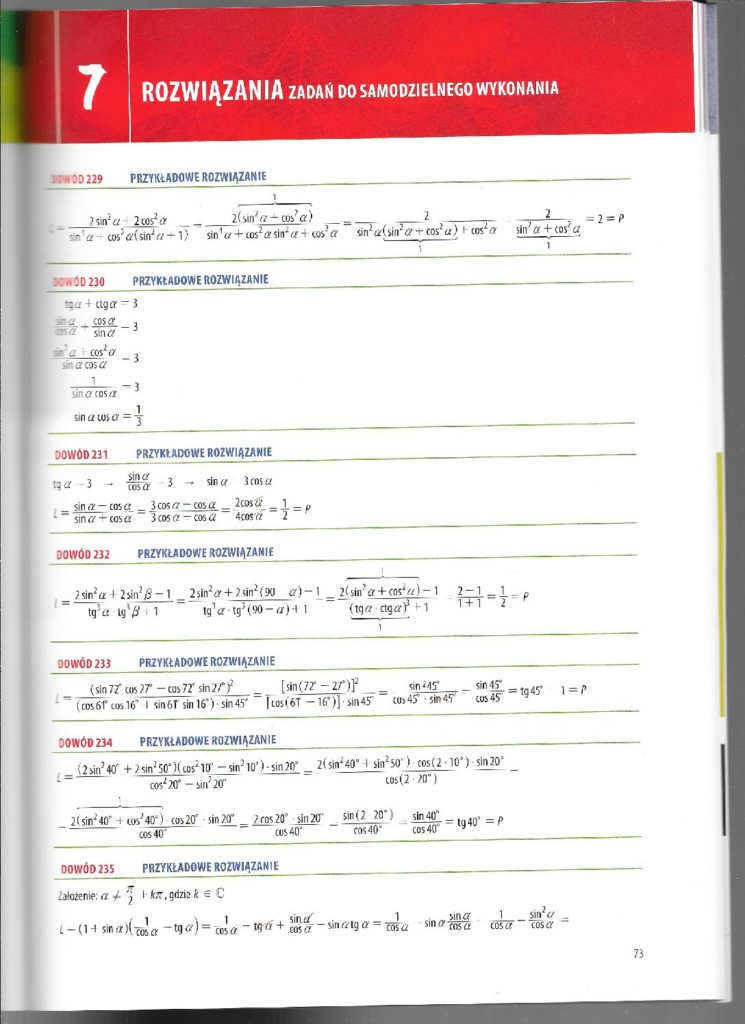 7
ROZWIĄZANIA ZADAŃ DO SAMODZIELNEGO WYKONANIA
DOWÓD 229 PRZYKŁADOWE ROZWIĄZANIE
L = (2 sin² α + 2 cos² α)/(sin⁴ α + cos² α(sin² α + 1)) = 2(sin² α + cos² α)/(sin⁴ α + cos² α sin² α + cos² α) = 2/(sin² α(sin² α + cos² α) + cos² α) = 2/(sin² α + cos² α) = 2 = P
DOWÓD 230 PRZYKŁADOWE ROZWIĄZANIE
tg α + ctg α = 3
sin α/cos α + cos α/sin α = 3
(sin² α + cos² α)/(sin α cos α) = 3
1/(sin α cos α) = 3
sin α cos α = 1/3
DOWÓD 231 PRZYKŁADOWE ROZWIĄZANIE
tg α = 3 → sin α/cos α = 3 → sin α = 3 cos α
L = (sin α − cos α)/(sin α + cos α) = (3 cos α − cos α)/(3 cos α + cos α) = 2 cos α/4 cos α = 1/2 = P
DOWÓD 232 PRZYKŁADOWE ROZWIĄZANIE
L = (2 sin² α + 2 sin² β − 1)/(tg³ α · tg³ β + 1) = (2 sin² α + 2 sin² (90 − α) − 1)/(tg³ α · tg³ (90 − α) + 1) = (2(sin² α + cos² α) − 1)/((tg α · ctg α)³ + 1) = (2 − 1)/(1 + 1) = 1/2 = P
DOWÓD 233 PRZYKŁADOWE ROZWIĄZANIE
L = (sin 72° cos 27° − cos 72° sin 27°)²/((cos 61° cos 16° + sin 61° sin 16°) · sin 45°) = [sin(72° − 27°)]²/([cos(61° − 16°)] · sin 45°) = sin² 45°/(cos 45° · sin 45°) = sin 45°/cos 45° = tg 45° = 1 = P
DOWÓD 234 PRZYKŁADOWE ROZWIĄZANIE
L = (2 sin² 40° + 2 sin² 50°)(cos² 10° − sin² 10°) · sin 20°/(cos² 20° − sin² 20°) = 2(sin² 40° + sin² 50°) · cos(2 · 10°) · sin 20°/cos(2 · 20°) =
= 2(sin² 40° + cos² 40°) · cos 20° · sin 20°/cos 40° = 2 cos 20° · sin 20°/cos 40° = sin(2 · 20°)/cos 40° = sin 40°/cos 40° = tg 40° = P
DOWÓD 235 PRZYKŁADOWE ROZWIĄZANIE
Założenie: α ≠ π/2 + kπ, gdzie k ∈ C
L = (1 + sin α)(1/cos α − tg α) = 1/cos α − tg α + sin α/cos α − sin α tg α = 1/cos α − sin α sin α/cos α = 1/cos α − sin² α/cos α =
73